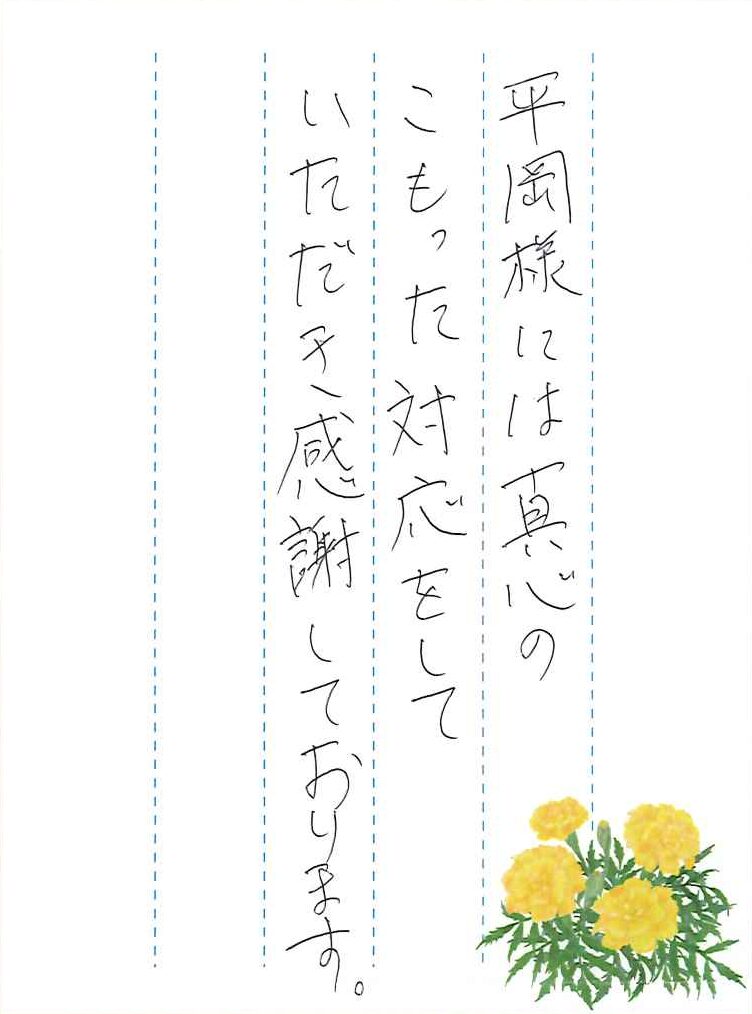 平岡様には真心の
こもった対応をして
いただき感謝しております。